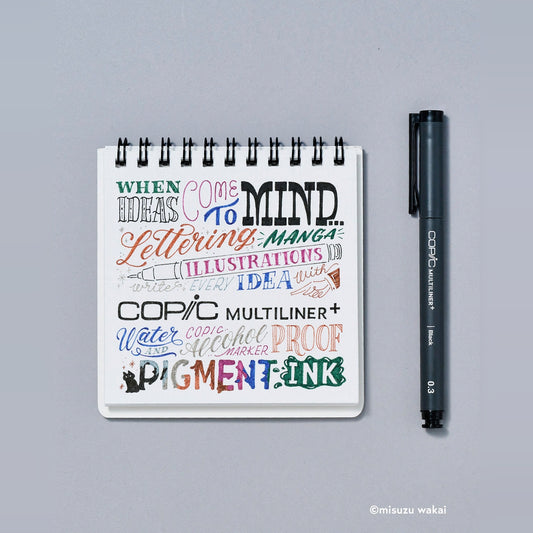 WHEN IDEAS COME TO MIND...
Lettering, MANGA
ILLUSTRATIONS
write EVERY IDEA with
COPIC MULTILINER+
Water AND COPIC Alcohol MARKER PROOF
PIGMENT INK
COPIC MULTILINER+ | Black 0.3
©misuzu wakai